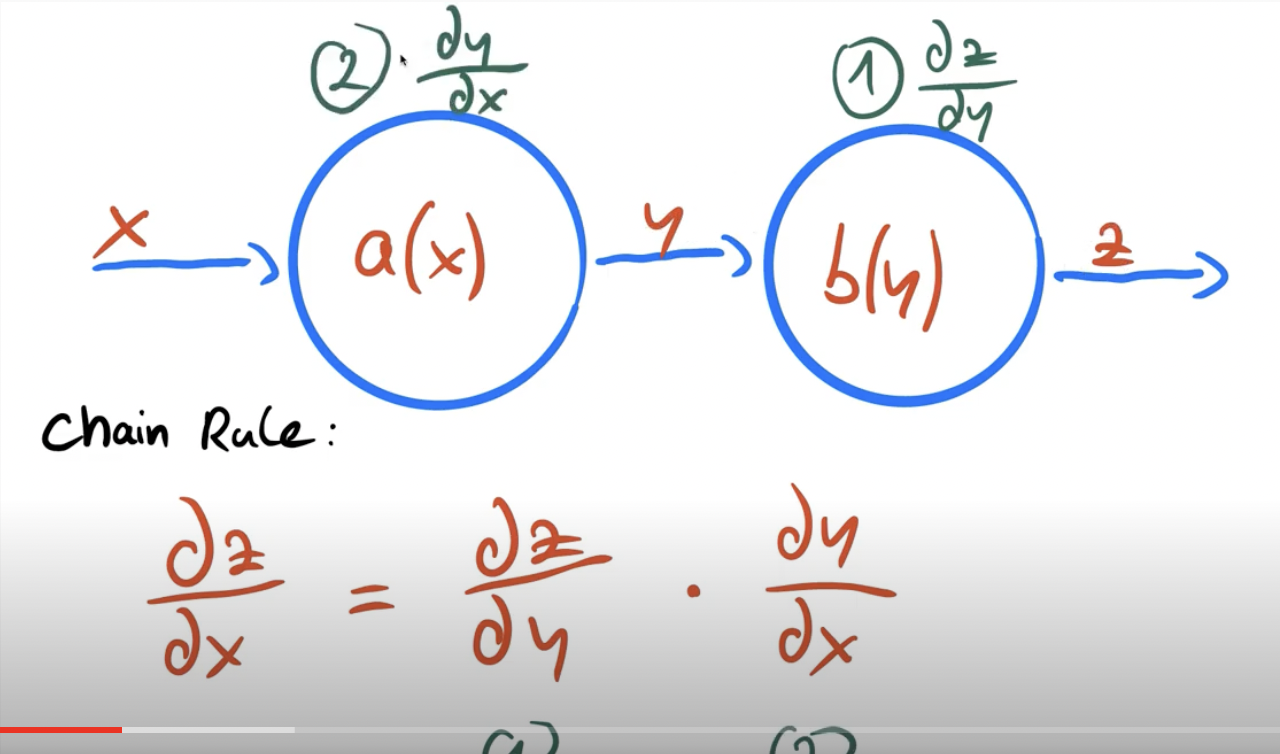 ② · ∂y/∂x ① ∂z/∂y
x a(x) y b(y) z
Chain Rule:
∂z/∂x = ∂z/∂y · ∂y/∂x